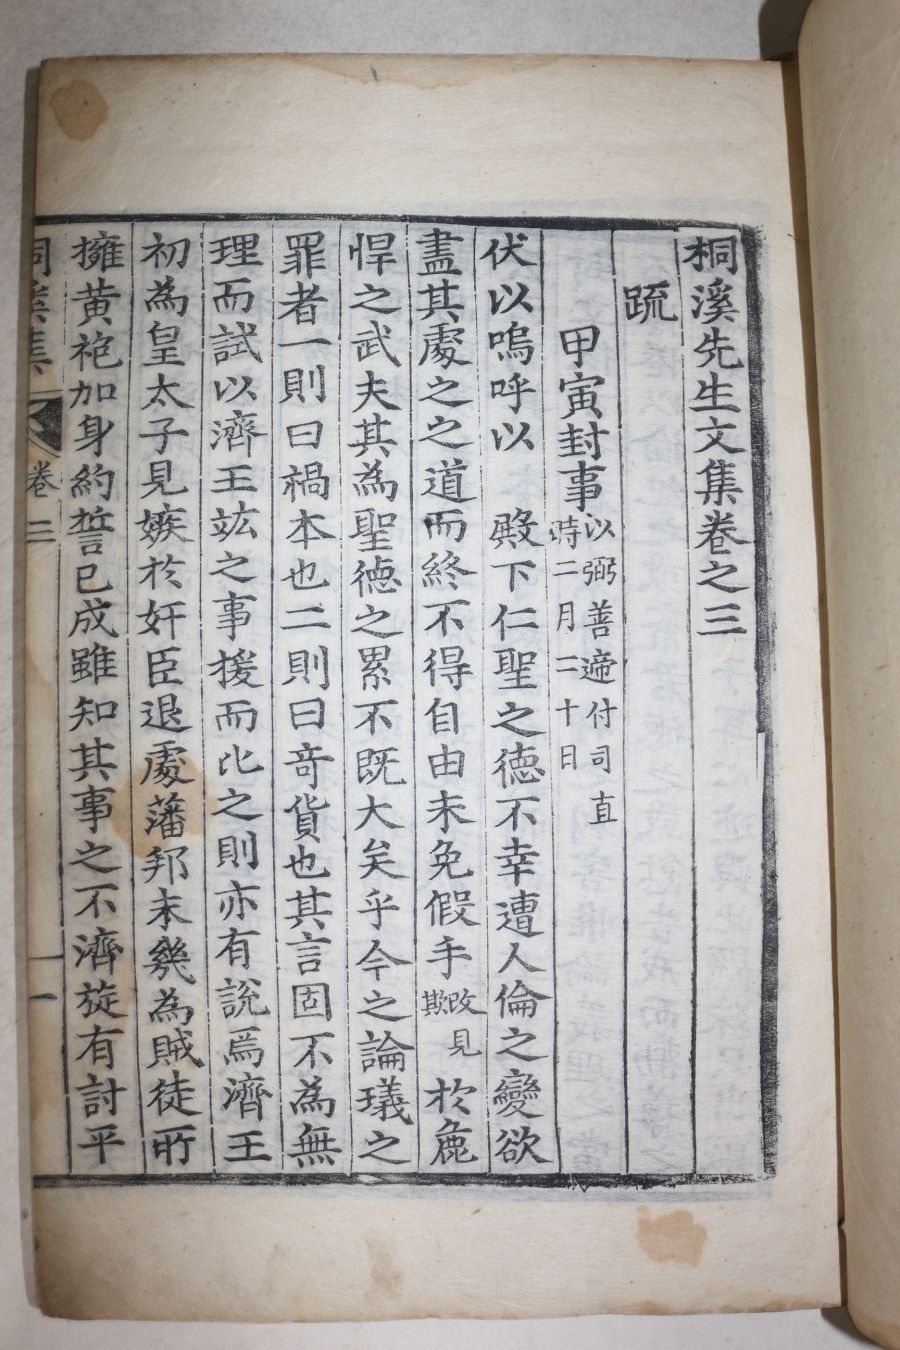 桐溪先生文集卷之三
疏
甲寅封事 以弼善啼付司直時二月二十日
伏以嗚呼以 殿下仁聖之德不幸遭人倫之變欲
盡其處之之道而終不得自由未免假手 改見欺 於麁
悍之武夫其為聖德之累不既大矣乎今之論議之
罪者一則曰禍本也二則曰奇貨也其言固不為無
理而試以濟王竑之事援而比之則亦有說焉濟王
初為皇太子見嫉於奸臣退處藩邦未幾為賊徒所
擁黃袍加身約誓已成雖知其事之不濟旋有討平
桐溪集 卷三 一